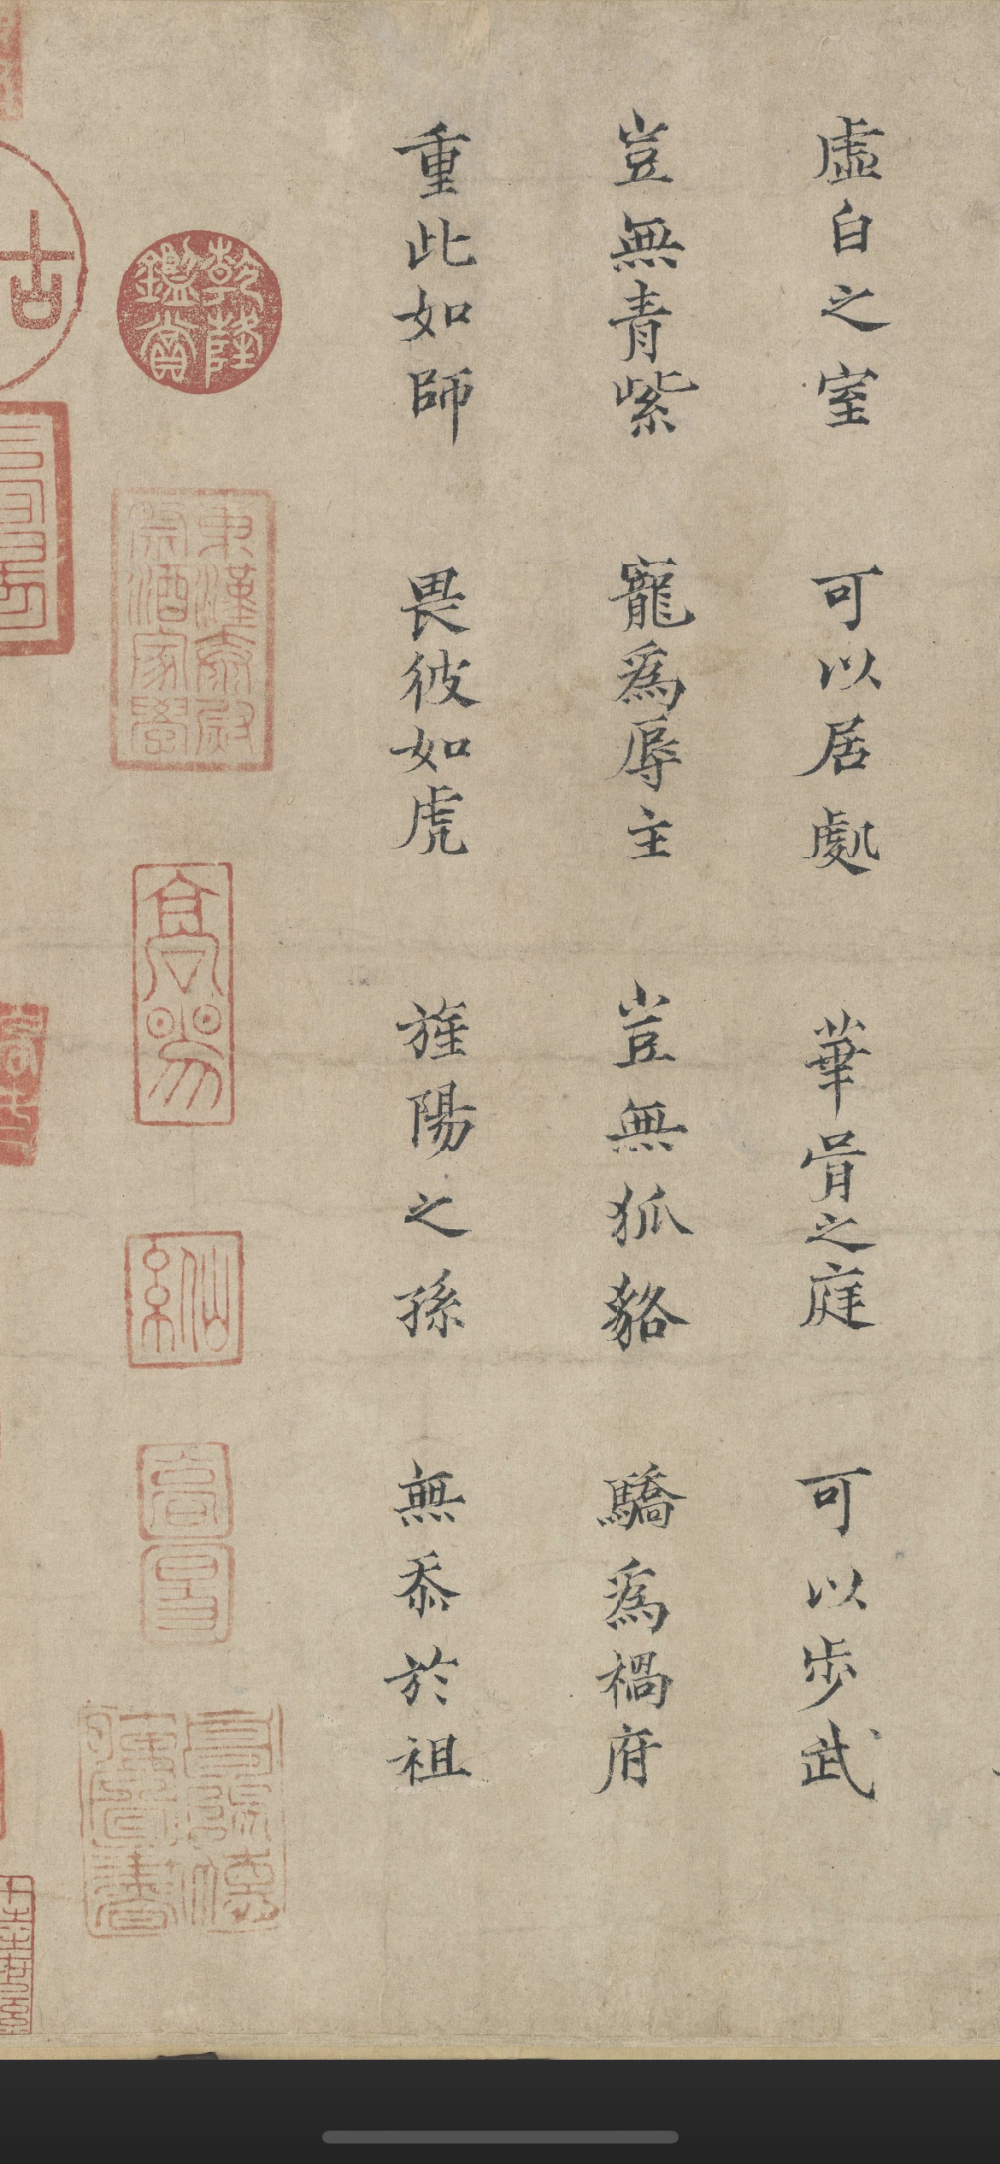 虛白之室 可以居處 華胥之庭 可以步武
豈無青紫 寵為辱主 豈無狐貉 驕為禍府
重此如師 畏彼如虎 旌陽之孫 無忝於祖
乾隆
鑑賞
東漢太尉
祭酒家學